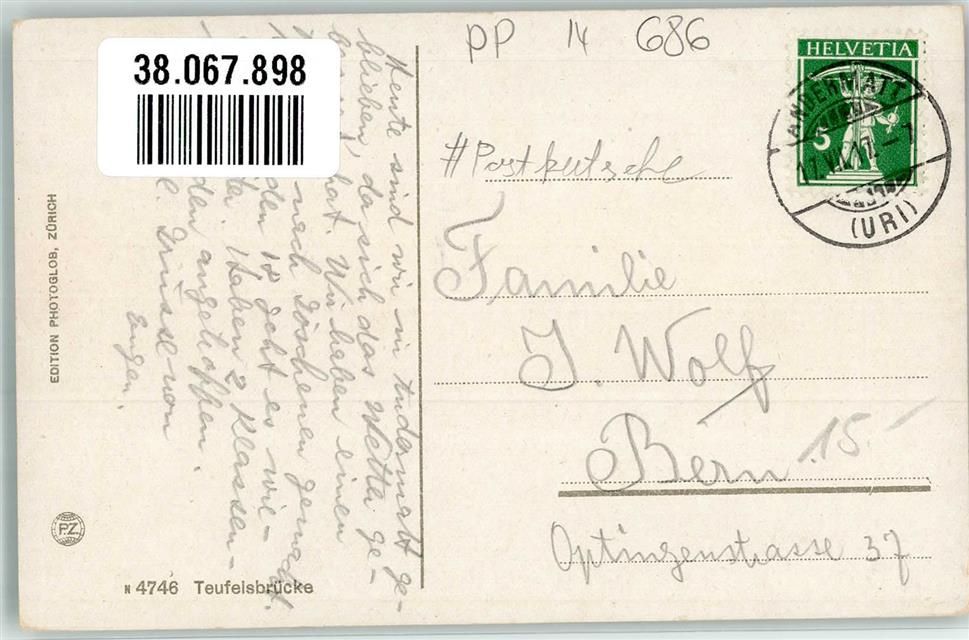 38.067.898
PP 14 686
HELVETIA
5
ANDERMATT
(URI)
#Postkutsche
Familie
J. Wolf
Bern 15.-
Optingenstrasse 37
EDITION PHOTOGLOB, ZÜRICH
P.Z.
N 4746 Teufelsbrücke
Heute sind wir in Andermatt ge-
blieben, da sich das Wetter ge-
hat. Wir haben einen
nach Göschenen gemacht.
den 18 geht es wie-
Haben 2 Klassen-
den angetroffen.
Grüsse von
Eugen.